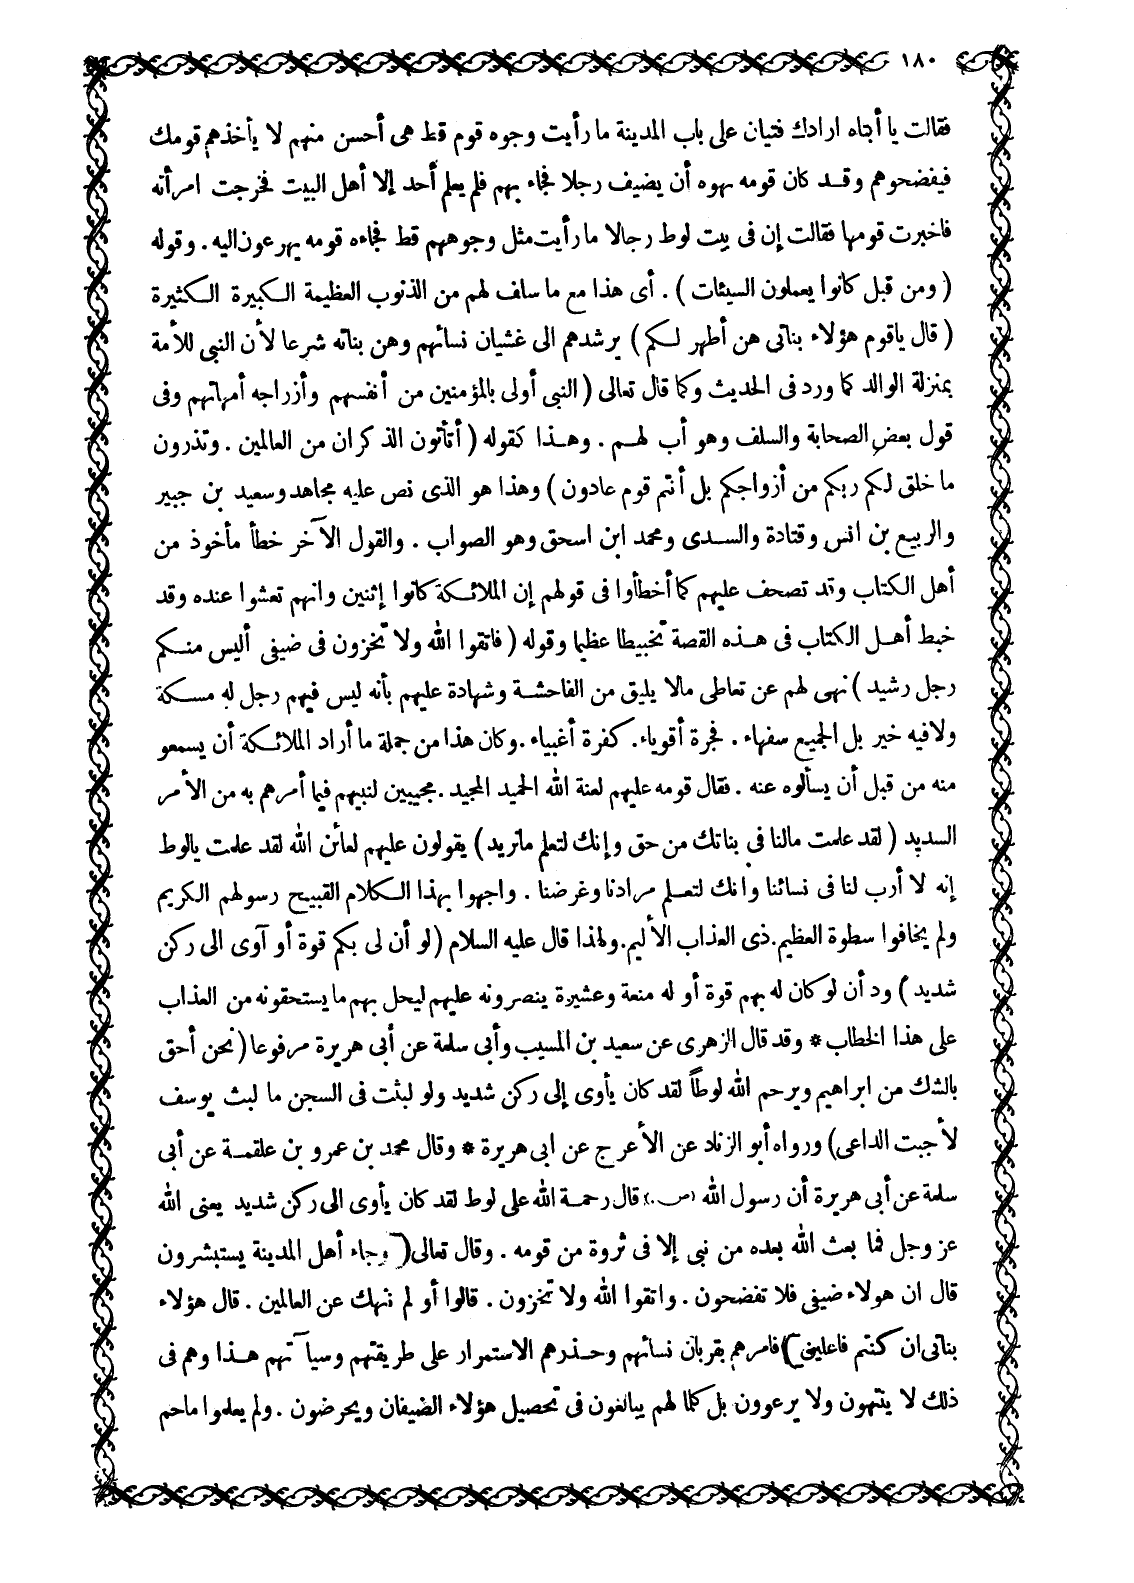 ١٨٠
فقالت يا أبتاه ارادك فتيان على باب المدينة ما رأيت وجوه قوم قط هى أحسن منهم لا يأخذهم قومك
فيفضحوهم وقد كان قومه نهوه أن يضيف رجلا فجاء بهم فلم يعلم أحد إلا أهل البيت فخرجت امرأته
فاخبرت قومها فقالت إن فى بيت لوط رجالا ما رأيت مثل وجوههم قط فجاءه قومه يهرعون اليه . وقوله
( ومن قبل كانوا يعملون السيئات ) . أى هذا مع ما سلف لهم من الذنوب العظيمة الكبيرة الكثيرة
( قال ياقوم هؤلاء بناتى هن أطهر لكم ) يرشدهم الى غشيان نسائهم وهن بناته شرعا لأن النبى للأمة
بمنزلة الوالد كما ورد فى الحديث وكما قال تعالى ( النبى أولى بالمؤمنين من أنفسهم وأزراجه أمهاتهم وفى
قول بعض الصحابة والسلف وهو أب لهم . وهذا كقوله ( أتأتون الذكران من العالمين . وتذرون
ما خلق لكم ربكم من أزواجكم بل أنتم قوم عادون ) وهذا هو الذى نص عليه مجاهد وسعيد بن جبير
والربيع بن انس وقتادة والسدى ومحمد ابن اسحق وهو الصواب . والقول الآخر خطأ مأخوذ من
أهل الكتاب وقد تصحف عليهم كما أخطأوا فى قولهم إن الملائكة كانوا إثنين وانهم تعشوا عنده وقد
خبط أهل الكتاب فى هذه القصة تخبيطا عظيما وقوله ( فاتقوا الله ولا تخزون فى ضيفى أليس منكم
رجل رشيد ) نهى لهم عن تعاطى مالا يليق من الفاحشة وشهادة عليهم بأنه ليس فيهم رجل له مسكة
ولا فيه خير بل الجميع سفهاء . فجرة أقوياء . كفرة أغبياء . وكان هذا من جملة ما أراد الملائكة أن يسمعو
منه من قبل أن يسألوه عنه . فقال قومه عليهم لعنة الله الحميد المجيد . مجيبين لنبيهم فيما أمرهم به من الأمر
السديد ( لقد علمت مالنا فى بناتك من حق وإنك لتعلم مانريد ) يقولون عليهم لعائن الله لقد علمت يالوط
إنه لا أرب لنا فى نسائنا وانك لتعلم مرادنا وغرضنا . واجهوا بهذا الكلام القبيح رسولهم الكريم
ولم يخافوا سطوة العظيم . ذى العذاب الأليم . ولهذا قال عليه السلام (لو أن لى بكم قوة أو آوى الى ركن
شديد ) ود أن لو كان له بهم قوة أو له منعة وعشيرة ينصرونه عليهم ليحل بهم ما يستحقونه من العذاب
على هذا الخطاب * وقد قال الزهرى عن سعيد بن المسيب وأبى سلمة عن أبى هريرة مرفوعا (نحن أحق
بالشك من ابراهيم ويرحم الله لوطاً لقد كان يأوى إلى ركن شديد ولو لبثت فى السجن ما لبث يوسف
لأجبت الداعى) ورواه أبو الزناد عن الأعرج عن ابى هريرة * وقال محمد بن عمرو بن علقمة عن أبى
سلمة عن أبى هريرة أن رسول الله (ص.) قال رحمة الله على لوط لقد كان يأوى الى ركن شديد يعنى الله
عز وجل فما بعث الله بعده من نبى إلا فى ثروة من قومه . وقال تعالى ( وجاء أهل المدينة يستبشرون
قال ان هولاء ضيفى فلا تفضحون . واتقوا الله ولا تخزون . قالوا أو لم ننهك عن العالمين . قال هؤلاء
بناتى ان كنتم فاعلين ) فامرهم بقربان نسائهم وحذرهم الاستمرار على طريقتهم وسيآتهم هذا وهم فى
ذلك لا ينتهون ولا يرعوون بل كلما لهم يبالغون فى تحصيل هؤلاء الضيفان ويحرضون . ولم يعلموا ماحم